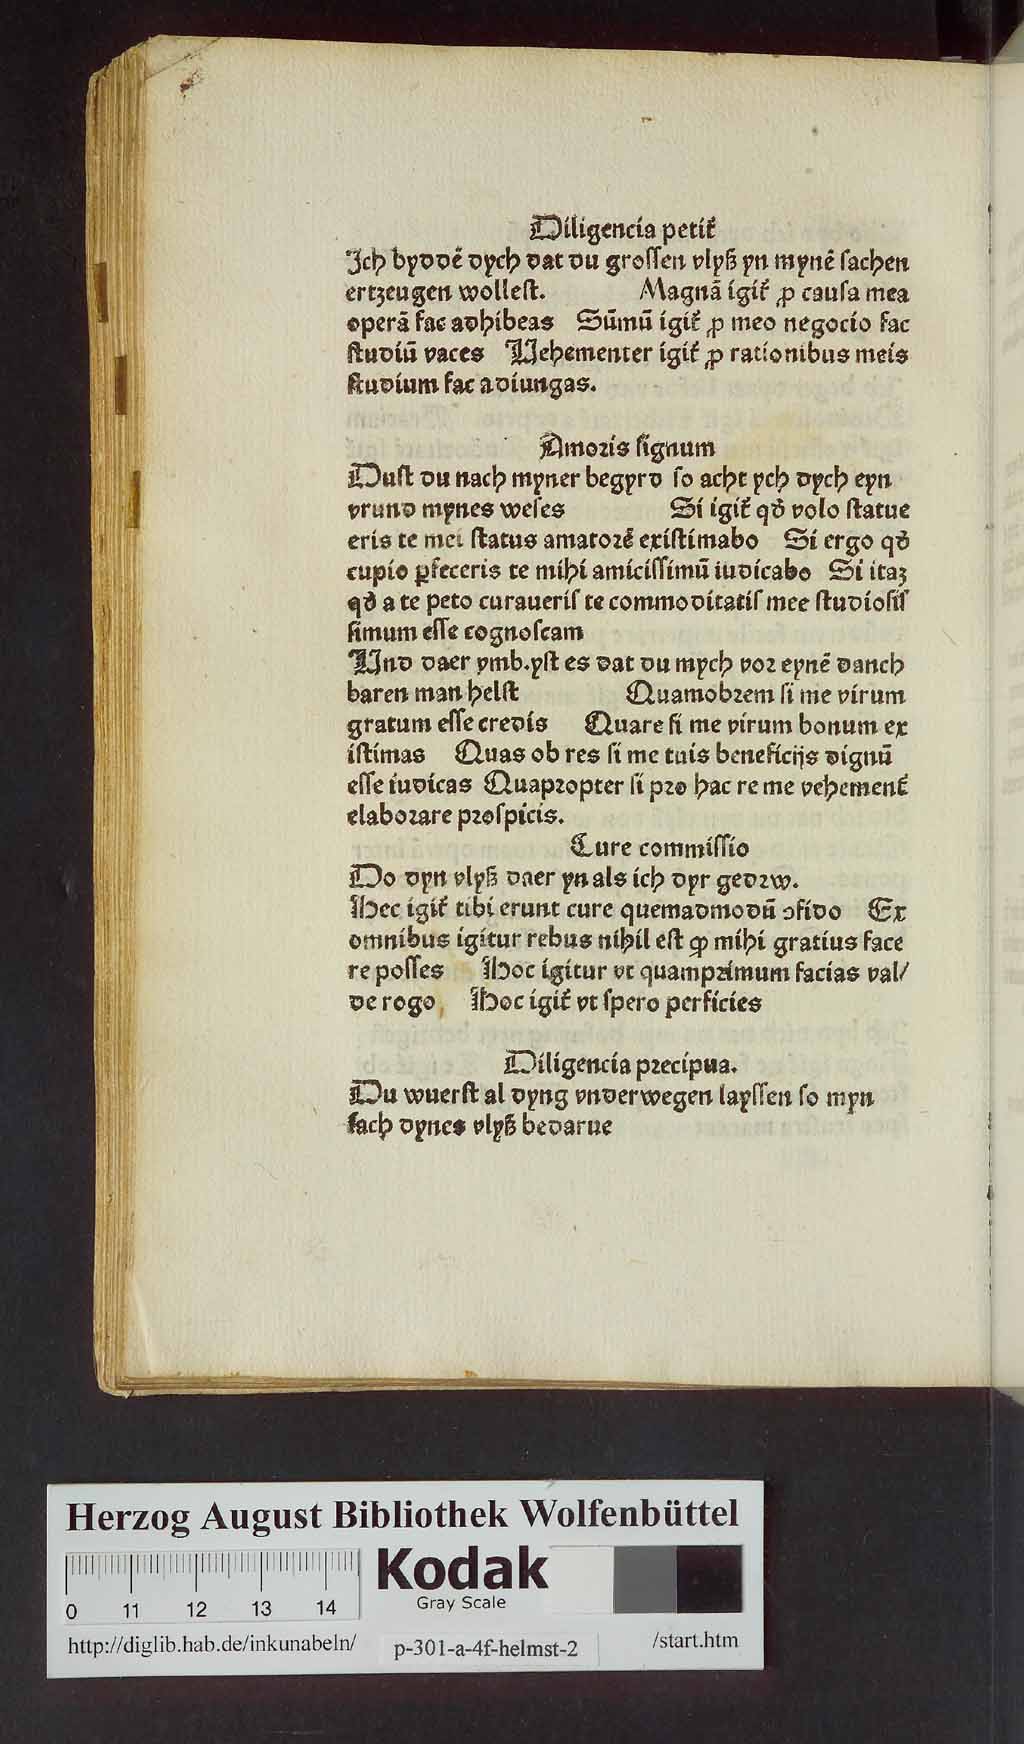 Diligencia petit᷑
Ich byddē dych dat du groſſen vlyß yn mynē ſachen
ertzeugen wolleſt. Magnā igit᷑ ꝓ cauſa mea
operā fac adhibeas Sūmū igit᷑ ꝓ meo negocio fac
ſtudiū vaces Vehementer igit᷑ ꝓ rationibus meis
ſtudium fac adiungas.
Amoꝛis ſignum
Duſt du nach myner begyrd ſo acht ych dych eyn
vrund mynes weſes Si igit᷑ qđ volo ſtatue
eris te mei ſtatus amatoꝛē exiſtimabo Si ergo qđ
cupio ꝑfeceris te mihi amiciſſimū iudicabo Si itaꝫ
qđ a te peto curaueriſ te commoditatiſ mee ſtudioſiſ
ſimum eſſe cognoſcam
Vnd daer ymb.yſt es dat du mych voꝛ eynē danch
baren man helſt Quamobꝛem ſi me virum
gratum eſſe credis Quare ſi me virum bonum ex
iſtimas Quas ob res ſi me tuis beneficijs dignū
eſſe iudicas Quapꝛopter ſi pꝛo hac re me vehement᷑
elaboꝛare pꝛoſpicis.
Cure commiſſio
Do dyn vlyß daer yn als ich dyr gedꝛw.
Hec igit᷑ tibi erunt cure quemadmodū ↄfido Ex
omnibus igitur rebus nihil eſt ꝙ mihi gratius face
re poſſes Hoc igitur vt quampꝛimum facias val/
de rogo, Hoc igit᷑ vt ſpero perficies
Diligencia pꝛecipua.
Du wuerſt al dyng vnderwegen layſſen ſo myn
ſach dynes vlyß bedarue
Herzog August Bibliothek Wolfenbüttel
Kodak
Gray Scale
0 11 12 13 14
http://diglib.hab.de/inkunabeln/ p-301-a-4f-helmst-2 /start.htm